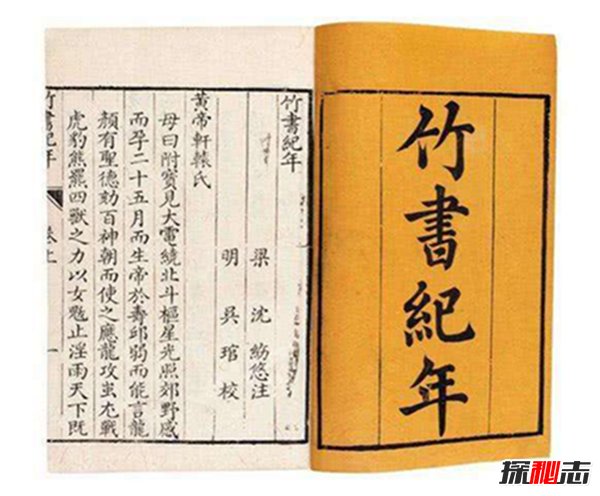 竹書紀年
竹書紀年
梁 沈 注
明 吳 琯 校
黃帝軒轅氏
母曰附寶見大電繞北斗樞星光照郊野感
而孕二十五月而生帝於壽邱弱而能言龍
顏有聖德劾百神朝而使之應龍攻蚩尤戰
虎豹熊羆四獸之力以女魃止淫雨天下既
竹書紀年 卷上 一
探秘志